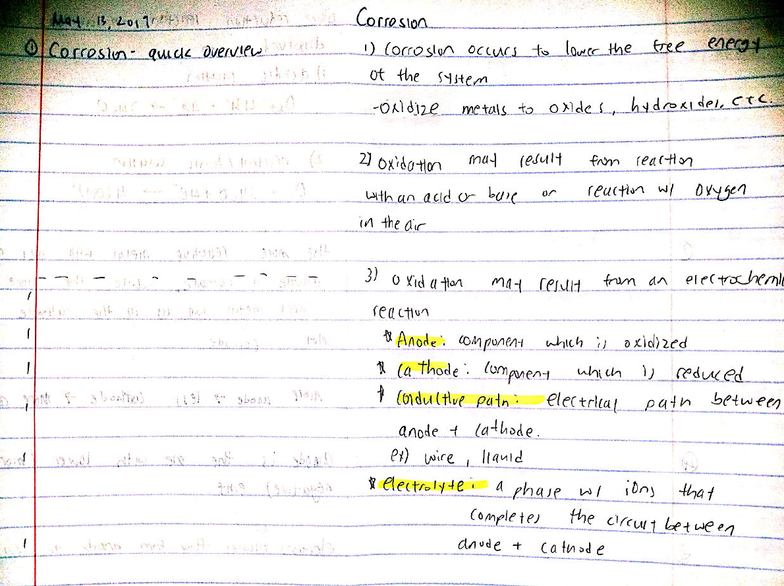 May 13, 2017
Corrosion
① Corrosion - quick overview
1) Corrosion occurs to lower the free energy
of the system
-oxidize metals to oxides, hydroxides, etc.
2) Oxidation may result from reaction
with an acid or base or reaction w/ oxygen
in the air
3) Oxidation may result from an electrochemi
reaction
* Anode: component which is oxidized
* Cathode: component which is reduced
* Conductive path: electrical path between
anode + cathode.
ex) wire, liquid
* electrolyte: a phase w/ ions that
completes the circuit between
anode + cathode